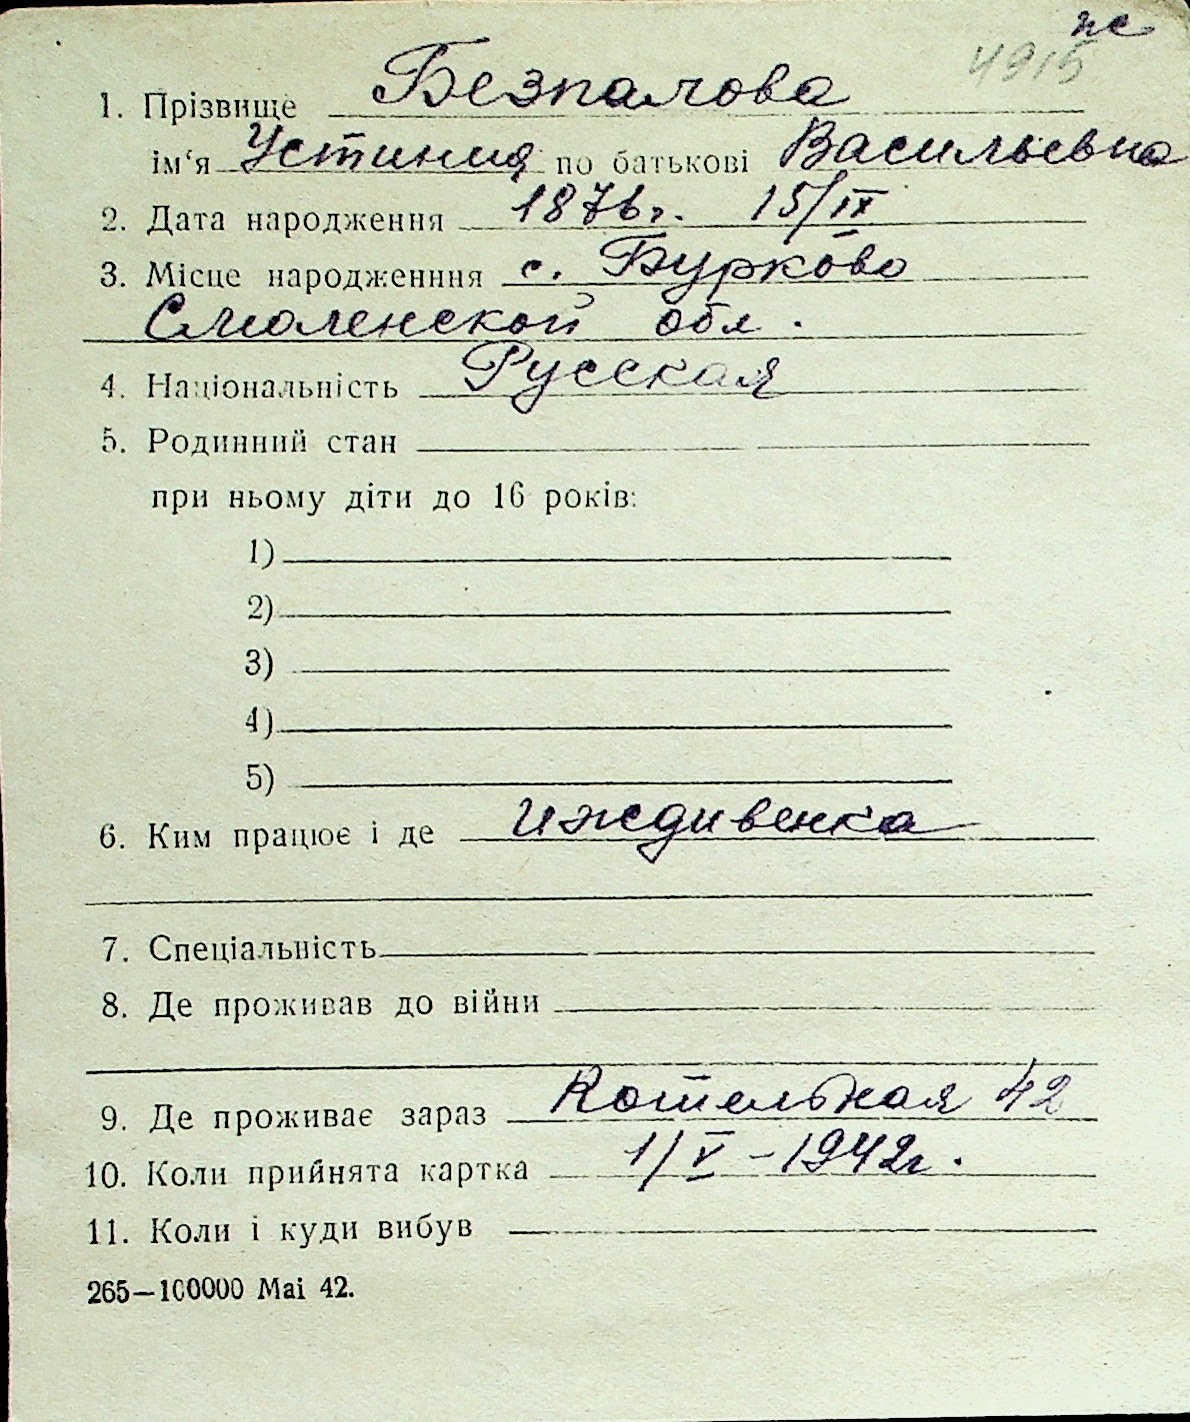 пс
4915
1. Прізвище Безпалова
ім‘я Устиния по батькові Васильевна
2. Дата народження 1876г. 15/IX
3. Місце народженння с. Бурково
Смоленской обл.
4. Національність Русская
5. Родинний стан
при ньому діти до 16 років:
1)
2)
3)
4)
5)
6. Ким працює і де иждивенка
7. Спеціальність
8. Де проживав до війни
9. Де проживає зараз Котельная 42
10. Коли прийнята картка 1/V – 1942г.
11. Коли і куди вибув
265—100000 Mai 42.